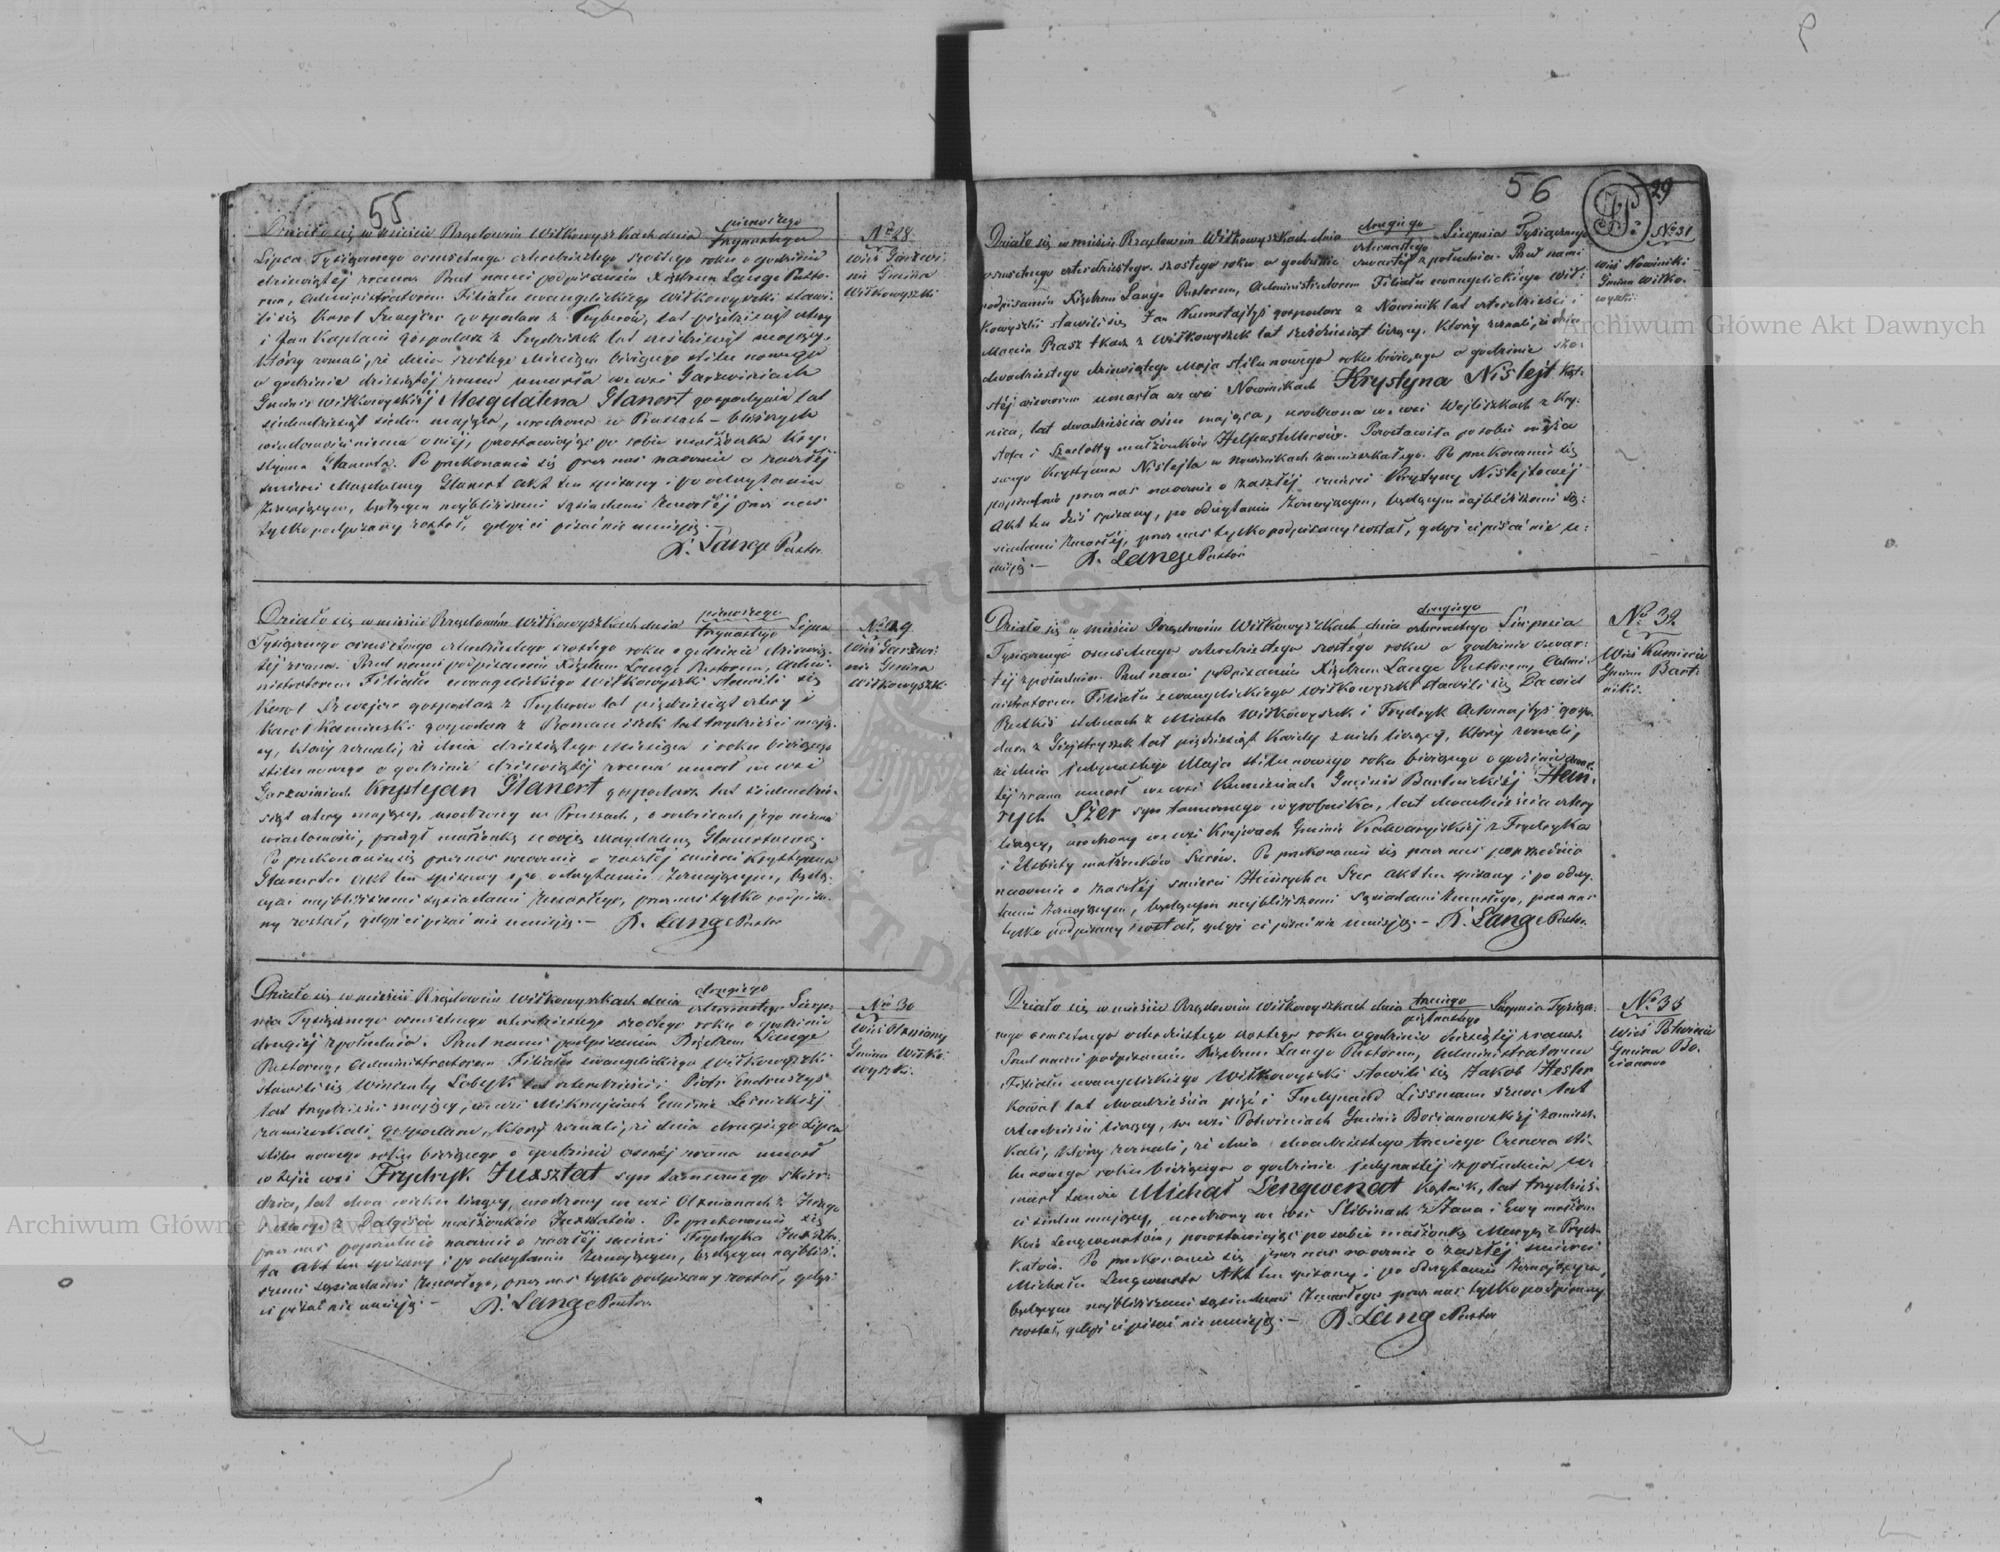 55
Działo się w mieście Rządowem Wiłkowyszkach dnia pierwszego / trzynastego
Lipca Tysiącznego ośmsetnego czterdziestego szóstego roku o godzinie
dziewiątej zrana. Przed nami podpisanem Xiędzem Lange Pasto-
rem, Administratorem Filiału ewangelickiego Wiłkowyszki stawi-
li się Karol Szwejcer gospodarz z Teyberów, lat pięćdziesiąt cztery
i Jan Kaplani gospodarz z lat sześćdziesiąt mający,
którzy zeznali, iż dnia szóstego miesiąca bieżącego stilu nowego
o godzinie dziesiątej zrana umarła we wsi Garzwiniach
Gminie Wiłkowyskiéj Magdalena Glanert gospodynia lat
siedmdziesiąt siedm mająca, urodzona w Prusach – bliższych
wiadomości niema o niéj, pozostawiając po sobie małżonka Kry-
styana Glanerta. Po przekonaniu się przez nas naocznie o zaszłéj
śmierci Magdaleny Glanert Akt ten spisany i po odczytaniu
Zeznającym, będącym najbliższemi sąsiadami Zmarłéj przez nas
tylko podpisany został, gdyż ci pisać nie umieją. –
R. Lange Pastor.
No 28.
Wieś Garzwi-
nie Gmina
Wiłkowyszki
Działo się w mieście Rządowém Wiłkowyszkach dnia pierwszego / trzynastego Lipca
Tysiącznego ośmsetnego czterdziestego szóstego roku o godzinie dziewią-
téj zrana. Przed nami podpisanem Xiędzem Lange Pastorem, Admi-
nistratorem Filiału ewangelickiego Wiłkowyszki stawili się
Karol Szwejcer gospodarz z Teyberów lat pięćdziesiąt cztery i
Karol Kamiński gospodarz z lat trzydzieści mają-
cy, którzy zeznali, iż dnia dziesiątego miesiąca i roku bieżącego
stilu nowego o godzinie dziewiątéj zrana umarł we wsi
Garzwiniach Krystyan Glanert gospodarz lat siedmdzie-
siąt cztery mający, urodzony w Prusach, o rodzicach jego niema
wiadomości, przeżył małżonkę swoją Magdalenę Glanertową.
Po przekonaniu się przez nas naocznie o zaszłéj śmierci Krystyana
Glanerta Akt ten spisany i po odczytaniu Zeznającym, będą-
cym najbliższemi sąsiadami Zmarłego, przez nas tylko podpisa-
ny został, gdyż ci pisać nie umieją. – R. Lange Pastor
No 29
Wieś Garzwi-
nie Gmina
Wiłkowyszki
Działo się w mieście Rządowém Wiłkowyszkach dnia drugiego / czternastego Sierp-
nia Tysiącznego ośmsetnego czterdziestego szóstego roku o godzinie
drugiéj z południa. Przed nami podpisanem Xiędzem Lange
Pastorem, Administratorem Filiału ewangelickiego Wiłkowyszki
stawili się Wincenty lat czterdzieści i Piotr
lat trzydzieści mający, we wsi Gminie
zamieszkali gospodarze, którzy zeznali, iż dnia drugiego Lipca
stilu nowego roku bieżącego o godzinie ósméj zrana umarł
w téjże wsi Frydryk Juxztat syn tamecznego
lat dwa wieku liczący, urodzony we wsi z Jurgo
małżonków Juxztatów. Po przekonaniu się
przez nas poprzednio naocznie o zaszłéj śmierci Frydryka Juxzta-
ta Akt ten spisany i po odczytaniu Zeznającym, będącym najbliż-
szemi sąsiadami Zmarłego, przez nas tylko podpisany został, gdyż
ci pisać nie umieją – R. Lange Pastor.
No 30
Wieś Olxniany
Gmina Wiłko-
wyszki.
56
29
Działo się w mieście Rządowém Wiłkowyszkach dnia drugiego / czternastego Sierpnia Tysiącznego
ośmsetnego czterdziestego szóstego roku o godzinie czwartéj z południa. Przed nami
podpisanem Xiędzem Lange Pastorem, Administratorem Filiału ewangelickiego Wił-
kowyszki stawili się Jan gospodarz z Nowinik lat czterdzieści i
Maciéj tkacz z Wiłkowyszek lat sześćdziesiąt liczący, którzy zeznali, iż dnia
dwudziestego dziewiątego Maja stilu nowego roku bieżącego o godzinie szó-
stéj wieczorem umarła we wsi Nowinikach Krystyna Nislejt Kąt-
nica, lat dwadzieścia ośm mająca, urodzona we wsi Wojliszkach z Kry-
stofa i Szarlotty małżonków Helfensztellerów. Pozostawiła po sobie męża
swego Krystyana Nislejta w Nowinikach zamieszkałego. Po przekonaniu się
poprzednio przez nas naocznie o zaszłéj śmierci Krystyny Nislejtowéj
Akt ten dziś spisany, po odczytaniu Zeznającym, będącym najbliższemi są-
siadami Zmarłéj, przez nas tylko podpisany został, gdyż ci pisać nie u-
mieją. – R. Lange Pastor
No 31
Wieś Nowiniki
Gmina Wiłko-
wyszki.
Działo się w mieście Rządowém Wiłkowyszkach dnia drugiego / czternastego Sierpnia
Tysiącznego ośmsetnego czterdziestego szóstego roku o godzinie czwar-
téj z południa. Przed nami podpisanem Xiędzem Lange Pastorem, Admi-
nistratorem Filiału ewangelickiego Wiłkowyszki stawili się Dawid
z Miasta Wiłkowyszek i Frydryk gospo-
darz z lat pięćdziesiąt każdy z nich liczący, którzy zeznali,
iż dnia jedynastego Maja stilu nowego roku bieżącego o godzinie
zrana umarł we wsi Kumieciach Gminie Bartnickiéj Hein-
rych Szer syn tamecznego wyrobnika, lat dwadzieścia cztery
liczący, urodzony we wsi Krejwach Gminie Kalwaryjskiéj z Frydryka
i Elżbiety małżonków Szerów. Po przekonaniu się przez nas poprzednio
naocznie o zaszłéj śmierci Heinrycha Szer Akt ten spisany i po odczy-
taniu Zeznającym, będącym najbliższemi sąsiadami Zmarłego, przez nas
tylko podpisany został, gdyż ci pisać nie umieją. – R. Lange Pastor.
No 32
Wieś Kumiecie
Gmina Bart-
niki.
Działo się w mieście Rządowém Wiłkowyszkach dnia trzeciego / piętnastego Sierpnia Tysiącz-
nego ośmsetnego czterdziestego szóstego roku o godzinie dziesiątéj zrana.
Przed nami podpisanem Xiędzem Lange Pastorem, Administratorem
Filiału ewangelickiego Wiłkowyszki stawili się Jakob Hesler
Kowal lat dwadzieścia pięć i Ferdynand Lissmann lat
czterdzieści liczący, we wsi Potwieciach Gminie Bocianowskiéj zamiesz-
kali, którzy zeznali, iż dnia dwudziestego trzeciego Czerwca sti-
lu nowego roku bieżącego o godzinie jedynastéj z południa u-
marł tamże Michał Lengwenat Kątnik, lat trzydzieś-
ci siedm mający, urodzony we wsi Slibinach z Jana i Ewy małżon-
ków Lengwenatów, pozostawiając po sobie małżonkę Maryą z
Po przekonaniu się przez nas naocznie o zaszłéj śmierci
Michała Lengwenata Akt ten spisany i po odczytaniu Zeznającym,
będącym najbliższemi sąsiadami Zmarłego przez nas tylko podpisany
został, gdyż ci pisać nie umieją. – R. Lange Pastor
No 33
Wieś Potwiecie
Gmina Bo-
cianowo
Archiwum Główne Akt Dawnych
Archiwum Główne Akt Dawnych